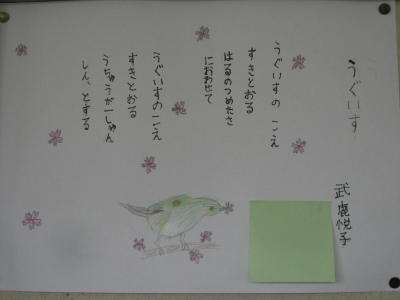 うぐいす
武鹿悦子
うぐいすの こえ
すきとおる
はるのつめたさ
におわせて
うぐいすの こえ
すきとおる
うちゅうが一しゅん
しん、とする